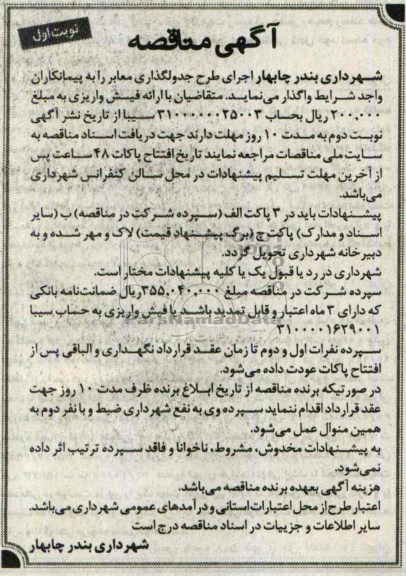 نوبت اول
آگهی مناقصه
شهرداری بندر چابهار اجرای طرح جدولگذاری معابر را به پیمانکاران
واجد شرایط واگذار می‌نماید. متقاضیان با ارائه فیش واریزی به مبلغ
۲۰۰،۰۰۰ ریال بحساب ۳۱۰۰۰۰۰۰۲۵۰۰۳ سیبا از تاریخ نشر آگهی
نوبت دوم به مدت ۱۰ روز مهلت دارند جهت دریافت اسناد مناقصه به
سایت ملی مناقصات مراجعه نمایند تاریخ افتتاح پاکات ۴۸ ساعت پس
از آخرین مهلت تسلیم پیشنهادات در محل سالن کنفرانس شهرداری
می‌باشد.
پیشنهادات باید در ۳ پاکت الف (سپرده شرکت در مناقصه) ب (سایر
اسناد و مدارک) پاکت ج (برگ پیشنهاد قیمت) لاک و مهر شده و به
دبیرخانه شهرداری تحویل گردد.
شهرداری در رد یا قبول یک یا کلیه پیشنهادات مختار است.
سپرده شرکت در مناقصه مبلغ ۳۵۵،۰۴۰،۰۰۰ ریال ضمانت‌نامه بانکی
که دارای ۳ ماه اعتبار و قابل تمدید باشد یا فیش واریزی به حساب سیبا
۳۱۰۰۰۰۱۶۲۹۰۰۱
سپرده نفرات اول و دوم تا زمان عقد قرارداد نگهداری و الباقی پس از
افتتاح پاکات عودت داده می‌شود.
در صورتیکه برنده مناقصه از تاریخ ابلاغ برنده ظرف مدت ۱۰ روز جهت
عقد قرارداد اقدام ننماید سپرده وی به نفع شهرداری ضبط و با نفر دوم به
همین منوال عمل می‌شود.
به پیشنهادات مخدوش، مشروط، ناخوانا و فاقد سپرده ترتیب اثر داده
نمی‌شود.
هزینه آگهی بعهده برنده مناقصه می‌باشد.
اعتبار طرح از محل اعتبارات استانی و درآمدهای عمومی شهرداری می‌باشد.
سایر اطلاعات و جزییات در اسناد مناقصه درج است
شهرداری بندر چابهار